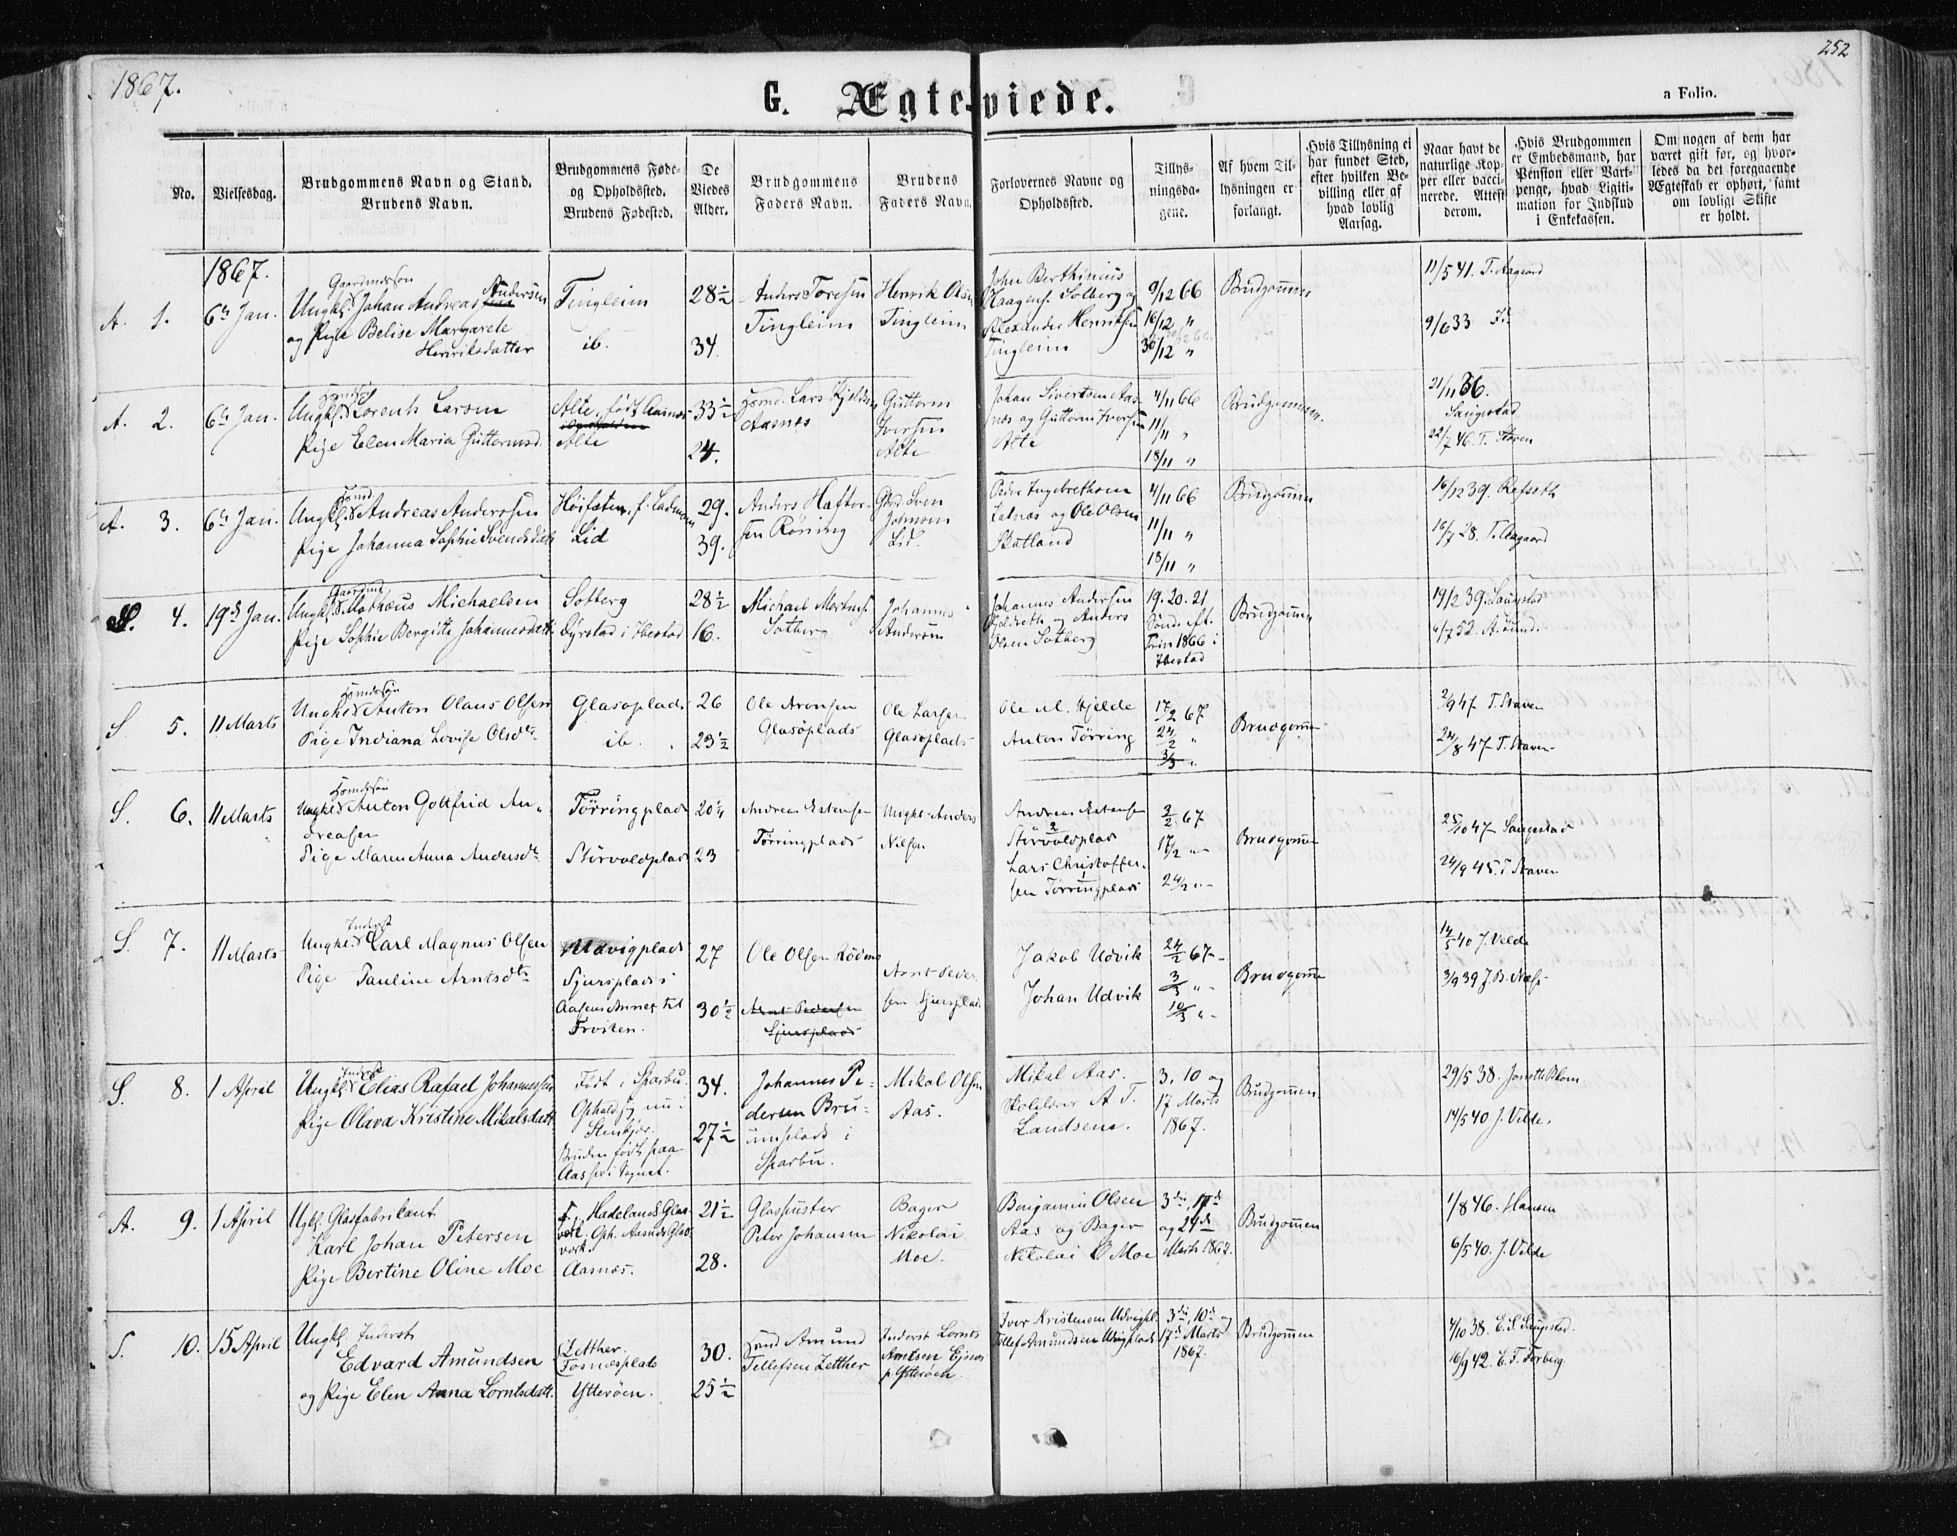 1867.
252
G. Ægteviede.
a Folio.
No.
Vielsesdag.
Brudgommens Navn og Stand.
Brudens Navn.
Brudgommens Føde-
og Opholdssted.
Brudens Fødested.
De
Viedes
Alder.
Brudgommens
Faders Navn.
Brudens
Faders Navn.
Forlovernes Navne og
Opholdssted.
Tillys-
ningsda-
gene.
Af hvem Til-
lysningen er
forlangt.
Hvis Tillysning ei
har fundet Sted,
efter hvilken Be-
villing eller af
hvad lovlig
Aarsag.
Naar havt de
naturlige Kop-
per eller vacci-
nerede. Attest
derom.
Hvis Brudgommen
er Embedsmand, har
Pension eller Vart-
penge, hvad Ligiti-
mation for Indskud
i Enkekassen.
Om nogen af dem har
været gift før, og hvor-
ledes da det foregaaende
Ægteskab er ophørt, samt
om lovligt Skifte
er holdt.
1867.
A. 1. 6te Jan.
Gaardmandssøn
Ungk. Johan Andreas Andersen
og Pige Belise Margarete
Henriksdatter
Tingleim
ib.
28½
34.
Anders Toresen
Tingleim
Henrik Olsen
Tingleim
John Berthinius
Haagens. Solberg og
Alexander Henriksen
Tingleim
9/12 66
16/12 "
30/12 "
Brudgommen
11/5 41. T. Aagaard
9/6 33
A. 2. 6te Jan.
Ungk. Lorents Larsen
Pige Elen Maria Guttormsd.
Alte, født Aarnes
Alte
33½
24.
Lars Kjeldsen
Aasnes
Guttorm
Iversen
Alte
Johan Sivertsen Aas-
nes og Guttorm Iversen
Alte
4/11 66
11/11 "
18/11 "
Brudgommen.
21/11 36.
Saugestad
22/7 46. T. Staven
A. 3. 6te Jan.
Ungk. Andreas Andersen
Pige Johanna Sophie Svendsdatt.
Lid
29.
39.
Anders Haftor-
sen Røsing
Sven
Johnsen
Lid.
Peder Ingebrethsen
og Ole Olsen
Skatland
4/11 66
11/11 "
18/11 "
Brudgommen
16/12 39. Refseth
16/7 28. T. Aagaard
4. 19de Jan.
Ungk. Mathæus Michaelsen
Pige Sophie Bergitte Johannesdatt.
Solberg
Dyrstad i Ibestad
28½
16.
Michael Mortens.
Solberg
Johannes
Andersen
Johannes Andersen
og Anders
Olsen Solberg
19. 20. 21
Sønd. Aft.
Trin 1866 i
Ibestad
Brudgommen
19/2 39. Saugestad
6/7 52. A. Lund.
S. 5. 11 Marts
Ungk. Anton Olaus Olsen
Pige Indiana Lovise Olsdtr.
Glasøplads
ib.
26
23½
Ole Aronsen
Glasøplads
Ole Larsen
Glasøplads
Ole M. Hjelde
Anton Tørring
17/2 67
24/2 "
3/3 "
Brudgomm
2/9 47 T. Staven
24/8 47 T. Staven
S. 6. 11 Marts
Ungk. Anton Gottfrid An-
dreasen
Pige Maren Anna Andersdtr.
Tørringplads
Størvoldplads
20¼
23
Andreas Estensen
Tørringplads
Ungk. Anders
Nilsen
Andreas Estensen
Størvoldplads
Lars Christoffer-
sen Tørringplads
3/2 67
17/2 "
24/2 "
Brudgomm
25/10 47 Saugestad
24/9 45. T. Staven
S. 7. 11 Marts
Inderst
Ungk. Carl Magnus Olsen
Pige Pauline Arntsdtr.
Udvigplads
Sjursplads i
Aasens Annex til
Frosten.
27
30½
Ole Olsen
Arnt Pedersen
Sjursplads
Arnt Peder-
sen Sjursplads
Jakob Udvik
Johan Udvik
24/2 67
3/3 "
10/3 "
Brudgomm
14/5 40 J. Velde
3/9 39 J. B. Næss
S. 8. 1 April
Inderst
Ungk. Elias Rafael Johannessen
Pige Olava Kristine Mikalsdatt.
Født i Sparbu.
Opholdssg nu i
Stenkjær.
Bruden født paa
Aas her i Sognet.
34.
27½
Johannes Pe-
dersen Bru-
umsplads i
Sparbu.
Mikal Olsen
Aas.
Mikal Aas.
Skolelærer A. T.
Landsem.
3, 10 og
17 Marts
1867.
Brudgommen.
29/5 38. Jonette Blom
14/5 40 J. Velde.
A. 9. 1 April
Ugk. Glasfabrikant
Karl Johan Petersen
Pige Bertine Oline Moe
f. Hadelands Glas-
værk. Oph. Aasnæs Glas-
værk.
Aasnæs.
21½
28.
Glaspuster
Peter Johansen
Bager
Nikolai
Moe.
Benjamin Olsen
Aas og Bager
Nikolai O Moe
3die, 17de
og 24de
Marts 1867.
Brudgommen
1/8 46. Hansen
6/5 40. J. Velde
S. 10. 15 April
Ungk. Inderst
Edvard Amundsen
og Pige Elen Anna Lorntsdatt.
Zetther.
Fosnæsplads
Ytterøen.
30.
25½
Amund
Tellefsen Zetther
Inderst Lornts
Arntsen
p. Ytterøen.
Iver Kristensen Udvigpl.
Tellef Amundsen Udvigplads
3die, 10de og
17de Marts
1867.
Brudgommen
4/10 38. E. S. Saugestad.
16/9 42. C. F. Forberg.